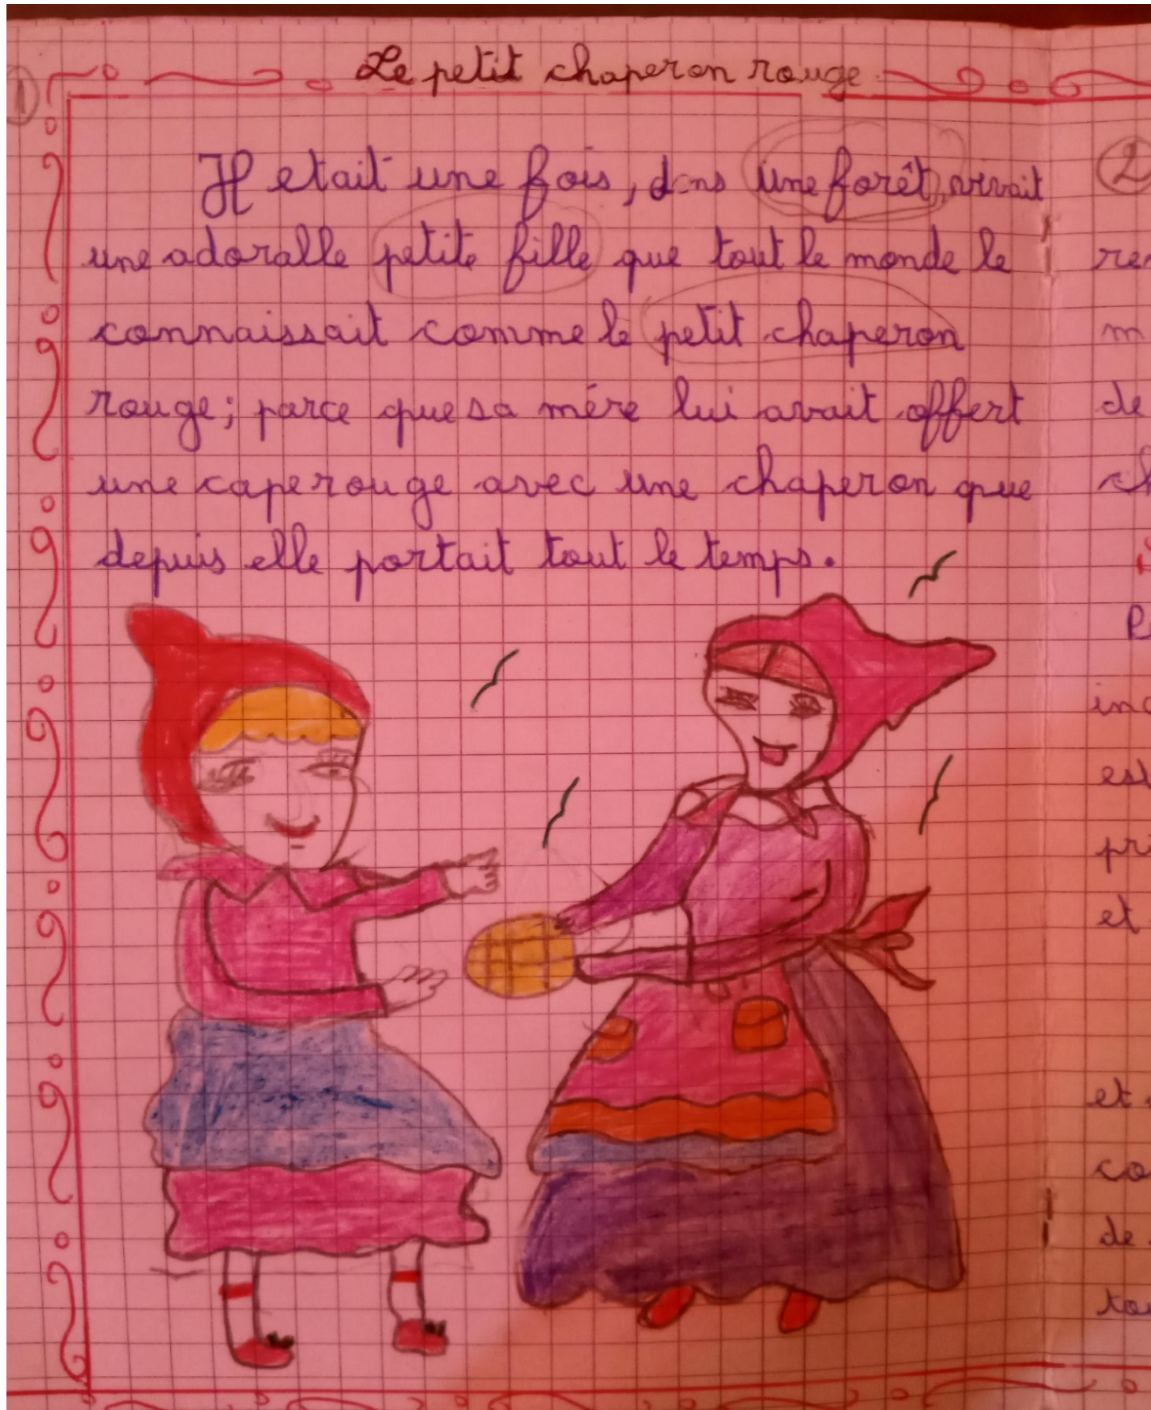 Le petit chaperon rouge
1
Il etait une fois, dans une forêt, vivait
une adoralle petite fille que tout le monde le
connaissait comme le petit chaperon
rouge; parce que sa mére lui avait offert
une cape rouge avec une chaperon que
depuis elle portait tout le temps.
2
de
et
et
de